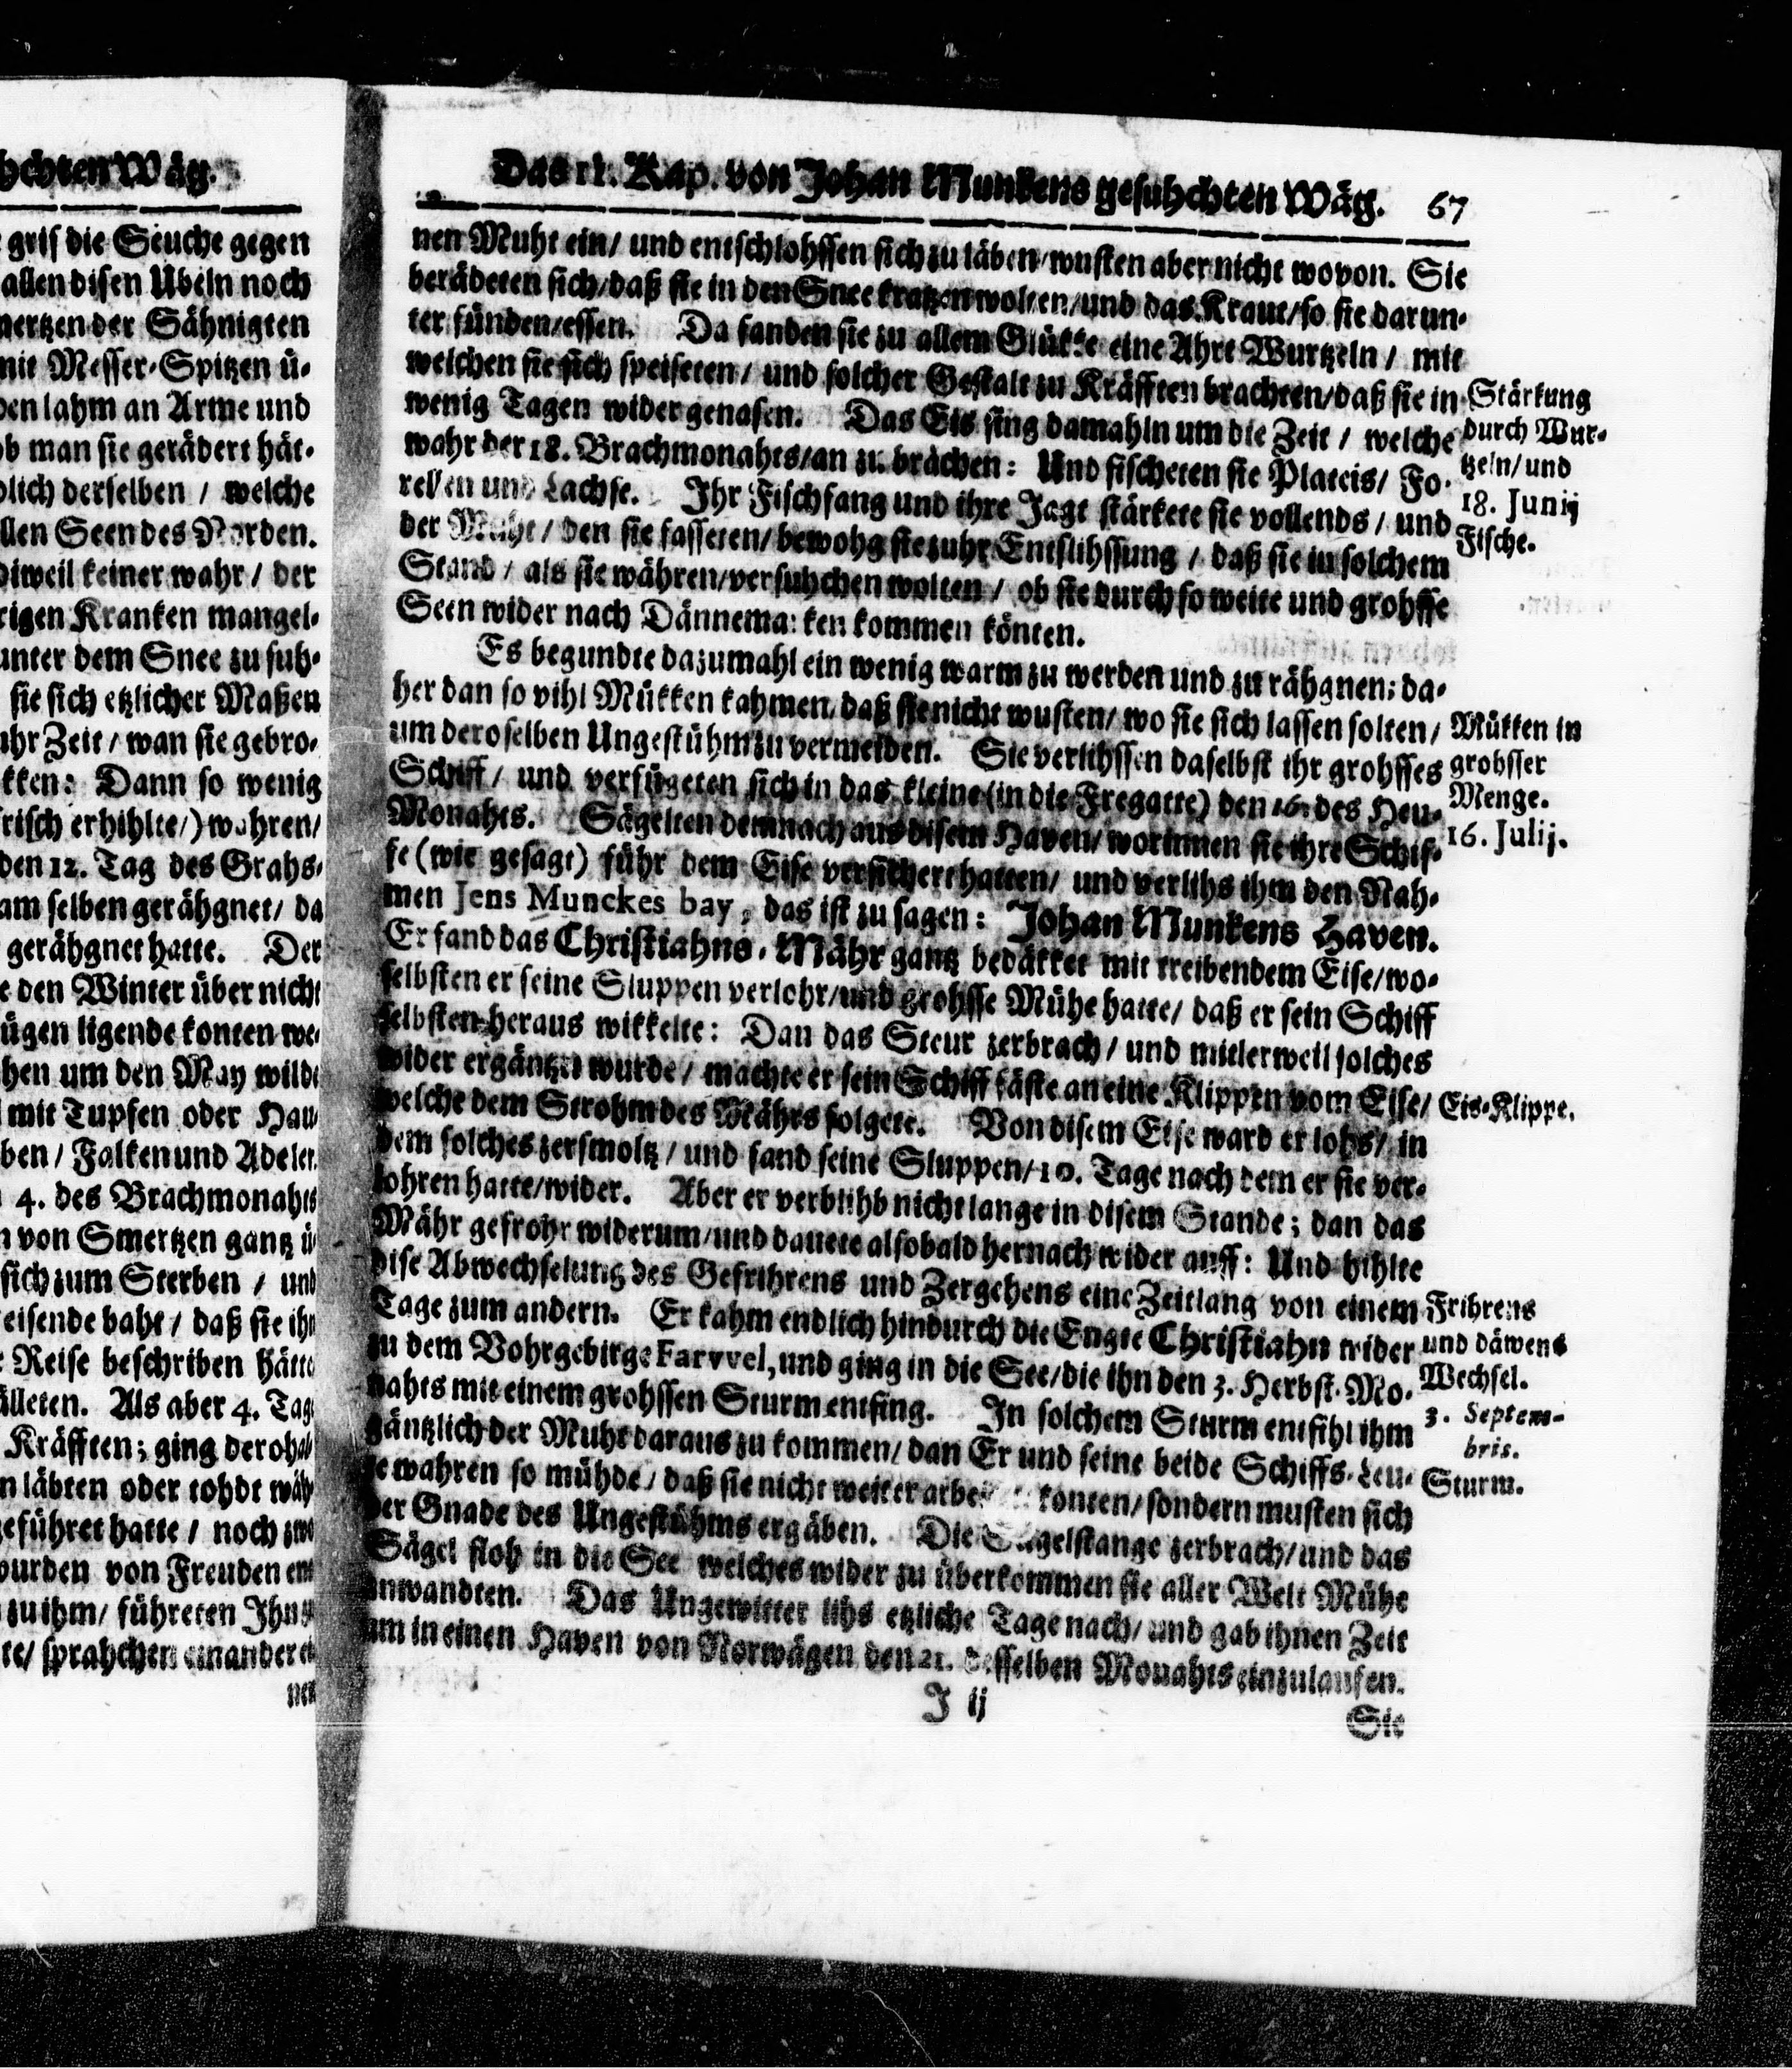 hchten Wäg.
gris die Seuche gegen
allen disen Übeln noch
mertzen der Sähnigten
mit Messer-Spitzen ü-
ben lahm an Arme und
ob man sie gerädert hät-
blich derselben / welche
llen Seen des Norden.
diweil keiner wahr / der
rigen Kranken mangel-
unter dem Snee zu suh-
sie sich etzlicher Maßen
uhr Zeit / wan sie gebro-
kken: Dann so wenig
frisch erhihlte/) wahren/
den 12. Tag des Grahs-
am selben gerähgnet/ da
gerähgnet hatte. Der
e den Winter über nicht
ügen ligende konten we-
hen um den May wilde
mit Tupfen oder Hau-
ben / Falken und Adeler.
4. des Brachmonahts
n von Smertzen gantz ü-
sich zum Sterben / und
eisende baht / daß sie ihn
Reise beschriben hätte
älleten. Als aber 4. Tag
Kräfften; ging der ohab
n läbten oder tohdt wäh
geführet hatte / noch zwe
wurden von Freuden ent
zu ihm/ führeten Ihn
te/ sprahchen einander
nen
Das 11. Kap. von Johan Munkens gesuhchten Wäg. 67
nen Muht ein/ und entschlohssen sich zu läben/wusten aber nicht wovon. Sie
beräderen sich/daß sie in den Snee kratzen wolten/und das Kraut/so sie darun-
ter fünden/essen. Da fanden sie zu allem Glükke eine Ahrt Wurtzeln / mit
welchen sie sich speiseten / und solcher Gestalt zu Kräfften brachten/daß sie in
wenig Tagen wider genasen. Das Eis fing damahln um die Zeit / welche
wahr der 18. Brachmonahts/an zu brächen: Und fischeten sie Plateis/ Fo-
rellen und Lachse. Ihr Fischfang und ihre Jagt stärkete sie vollends / und
der Muht / den sie fasseten/ bewohg sie zuhr Entslihssung / daß sie in solchem
Stand / als sie währen/versuhchen wolten / ob sie durch so weite und grohsse
Seen wider nach Dännemarken kommen könten.
Es begundte dazumahl ein wenig warm zu werden und zu rähgnen; da-
her dan so vihl Mükken kahmen/ daß sie nicht wusten/ wo sie sich lassen solten/
um deroselben Ungestühm zu vermeiden. Sie verlihssen daselbst ihr grohsses
Schiff / und verfügeten sich in das kleine (in die Fregatte) den 16. des Heu-
Monahts. Sägelten demnach aus disem Haven/ worinnen sie ihre Schif-
fe (wie gesagt) führ dem Eise versichert hatten/ und verlihs ihm den Nah-
men Jens Munckes bay, das ist zu sagen: Johan Munkens Haven.
Er fand das Christiahns-Mähr gantz bedäkket mit treibendem Eise/wo-
selbsten er seine Sluppen verlohr/und grohsse Mühe hatte/ daß er sein Schiff
selbsten heraus wikkelte: Dan das Steur zerbrach / und mitlerweil solches
wider ergäntzet wurde / machte er sein Schiff fäste an eine Klippen vom Eise/
welche dem Strohm des Mährs folgete. Von disem Eise ward er lohs/ in
dem solches zersmoltz / und fand seine Sluppen/10. Tage nach dem er sie ver-
lohren hatte/wider. Aber er verblihb nicht lange in disem Stande; dan das
Mähr gefrohr widerum/und dauete alsobald hernach wider auff: Und hihlte
dise Abwechselung des Gefrihrens und Zergehens eine Zeitlang von einem
Tage zum andern. Er kahm endlich hindurch die Engte Christiahn wider
zu dem Vohrgebirge Farvvel, und ging in die See/die ihn den 3. Herbst-Mo-
nahts mit einem grohssen Sturm entfing. In solchem Sturm entfihl ihm
gäntzlich der Muht daraus zu kommen/ dan Er und seine beide Schiffs-Leu-
te wahren so mühde / daß sie nicht weiter konten/sondern musten sich
der Gnade des Ungestühms ergäben. Die Sägelstange zerbrach/und das
Sägel floh in die See welches wider zu überkommen sie aller Welt Mühe
anwandten. Das Ungewitter lihs etzliche Tage nach/ und gab ihnen Zeit
um in einen Haven von Norwägen den 21. desselben Monahts einzulaufen.
J ij
Sie
Stärkung
durch Wur-
tzeln/ und
18. Junij
Fische.
Mükken in
grohsser
Menge.
16. Julij.
Eis-Klippe.
Frihrens
und däwens
Wechsel.
3. Septem-
bris.
Sturm.